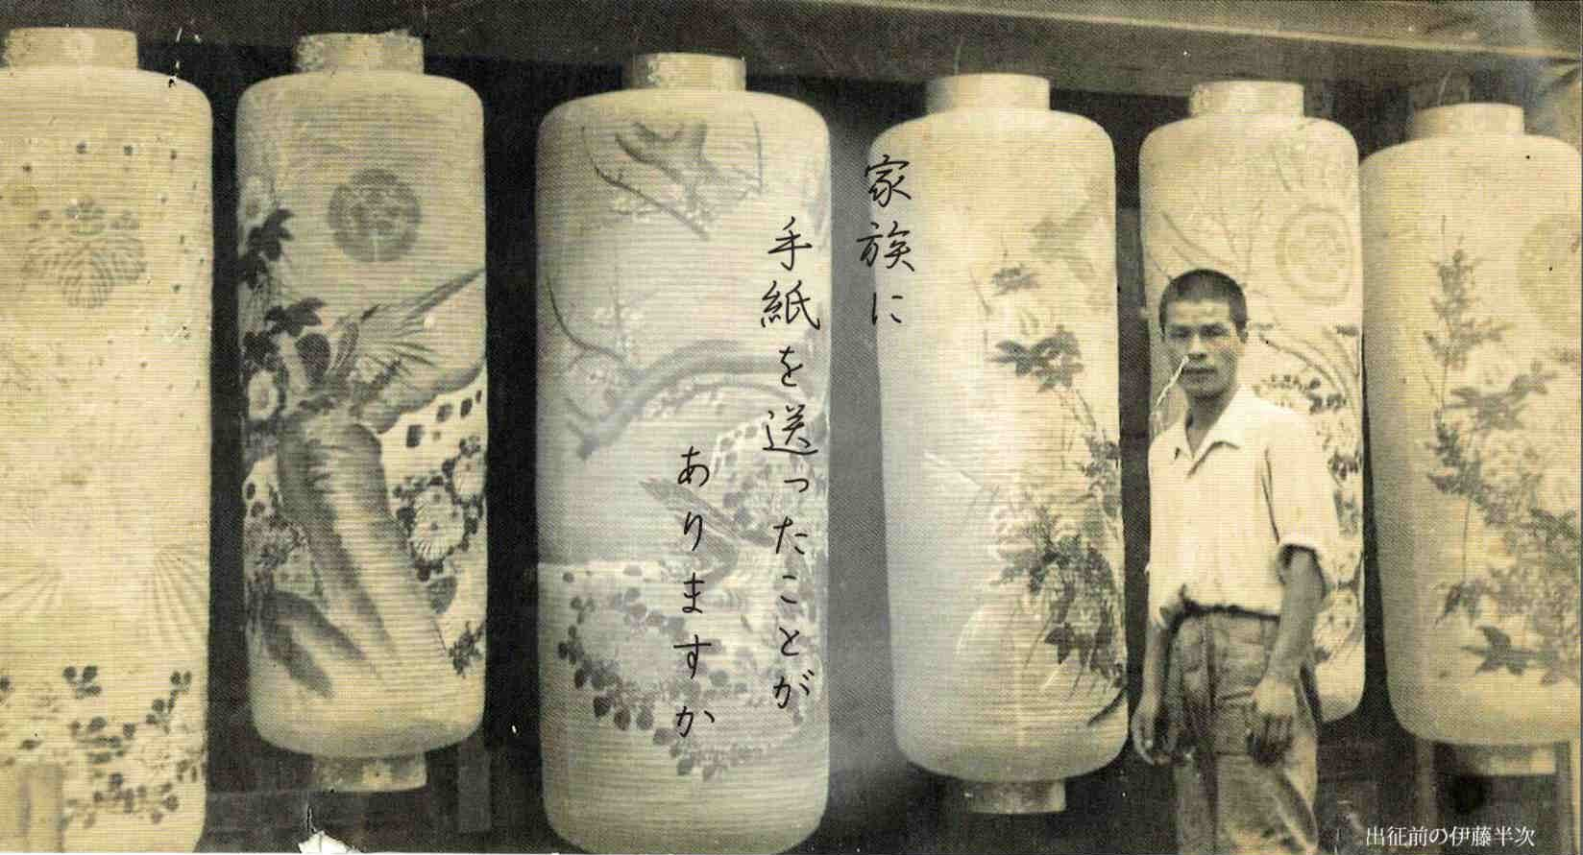 家族に
手紙を送ったことが
ありますか
出征前の伊藤半次